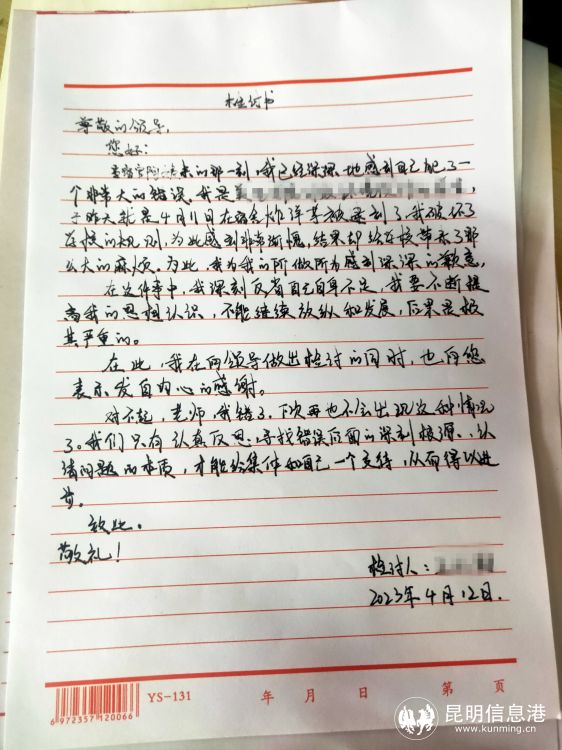 检讨书
尊敬的领导,
您好:
那一刻,我已经深深地感到自己犯了一
个非常大的错误,我是
于昨天就是4月11日在宿舍炸洋芋被录到了,我破坏了
在校的规则,为此感到非常渐愧,结果却给在校带来了那
么大的麻烦。为此,我为我的所做所为感到深深的歉意,
在这件事中,我深刻反省自己自身不足,我要不断提
高我的思想认识,不能继续放纵和发展,后果是极
其严重的。
在此,我在向领导做出检讨的同时,也向您
表示发自内心的感谢。
对不起,老师,我错了,下次再也不会出现这种情况
了。我们只有认真反思,寻找错误后面的深刻根源、认
清问题的本质,才能给集体和自己一个交待,从而得以进
步。
致此。
敬礼!
检讨人:
2023年4月12日.
6 972357 120066
YS-131
年 月 日
第 页
昆明信息港
www.kunming.cn